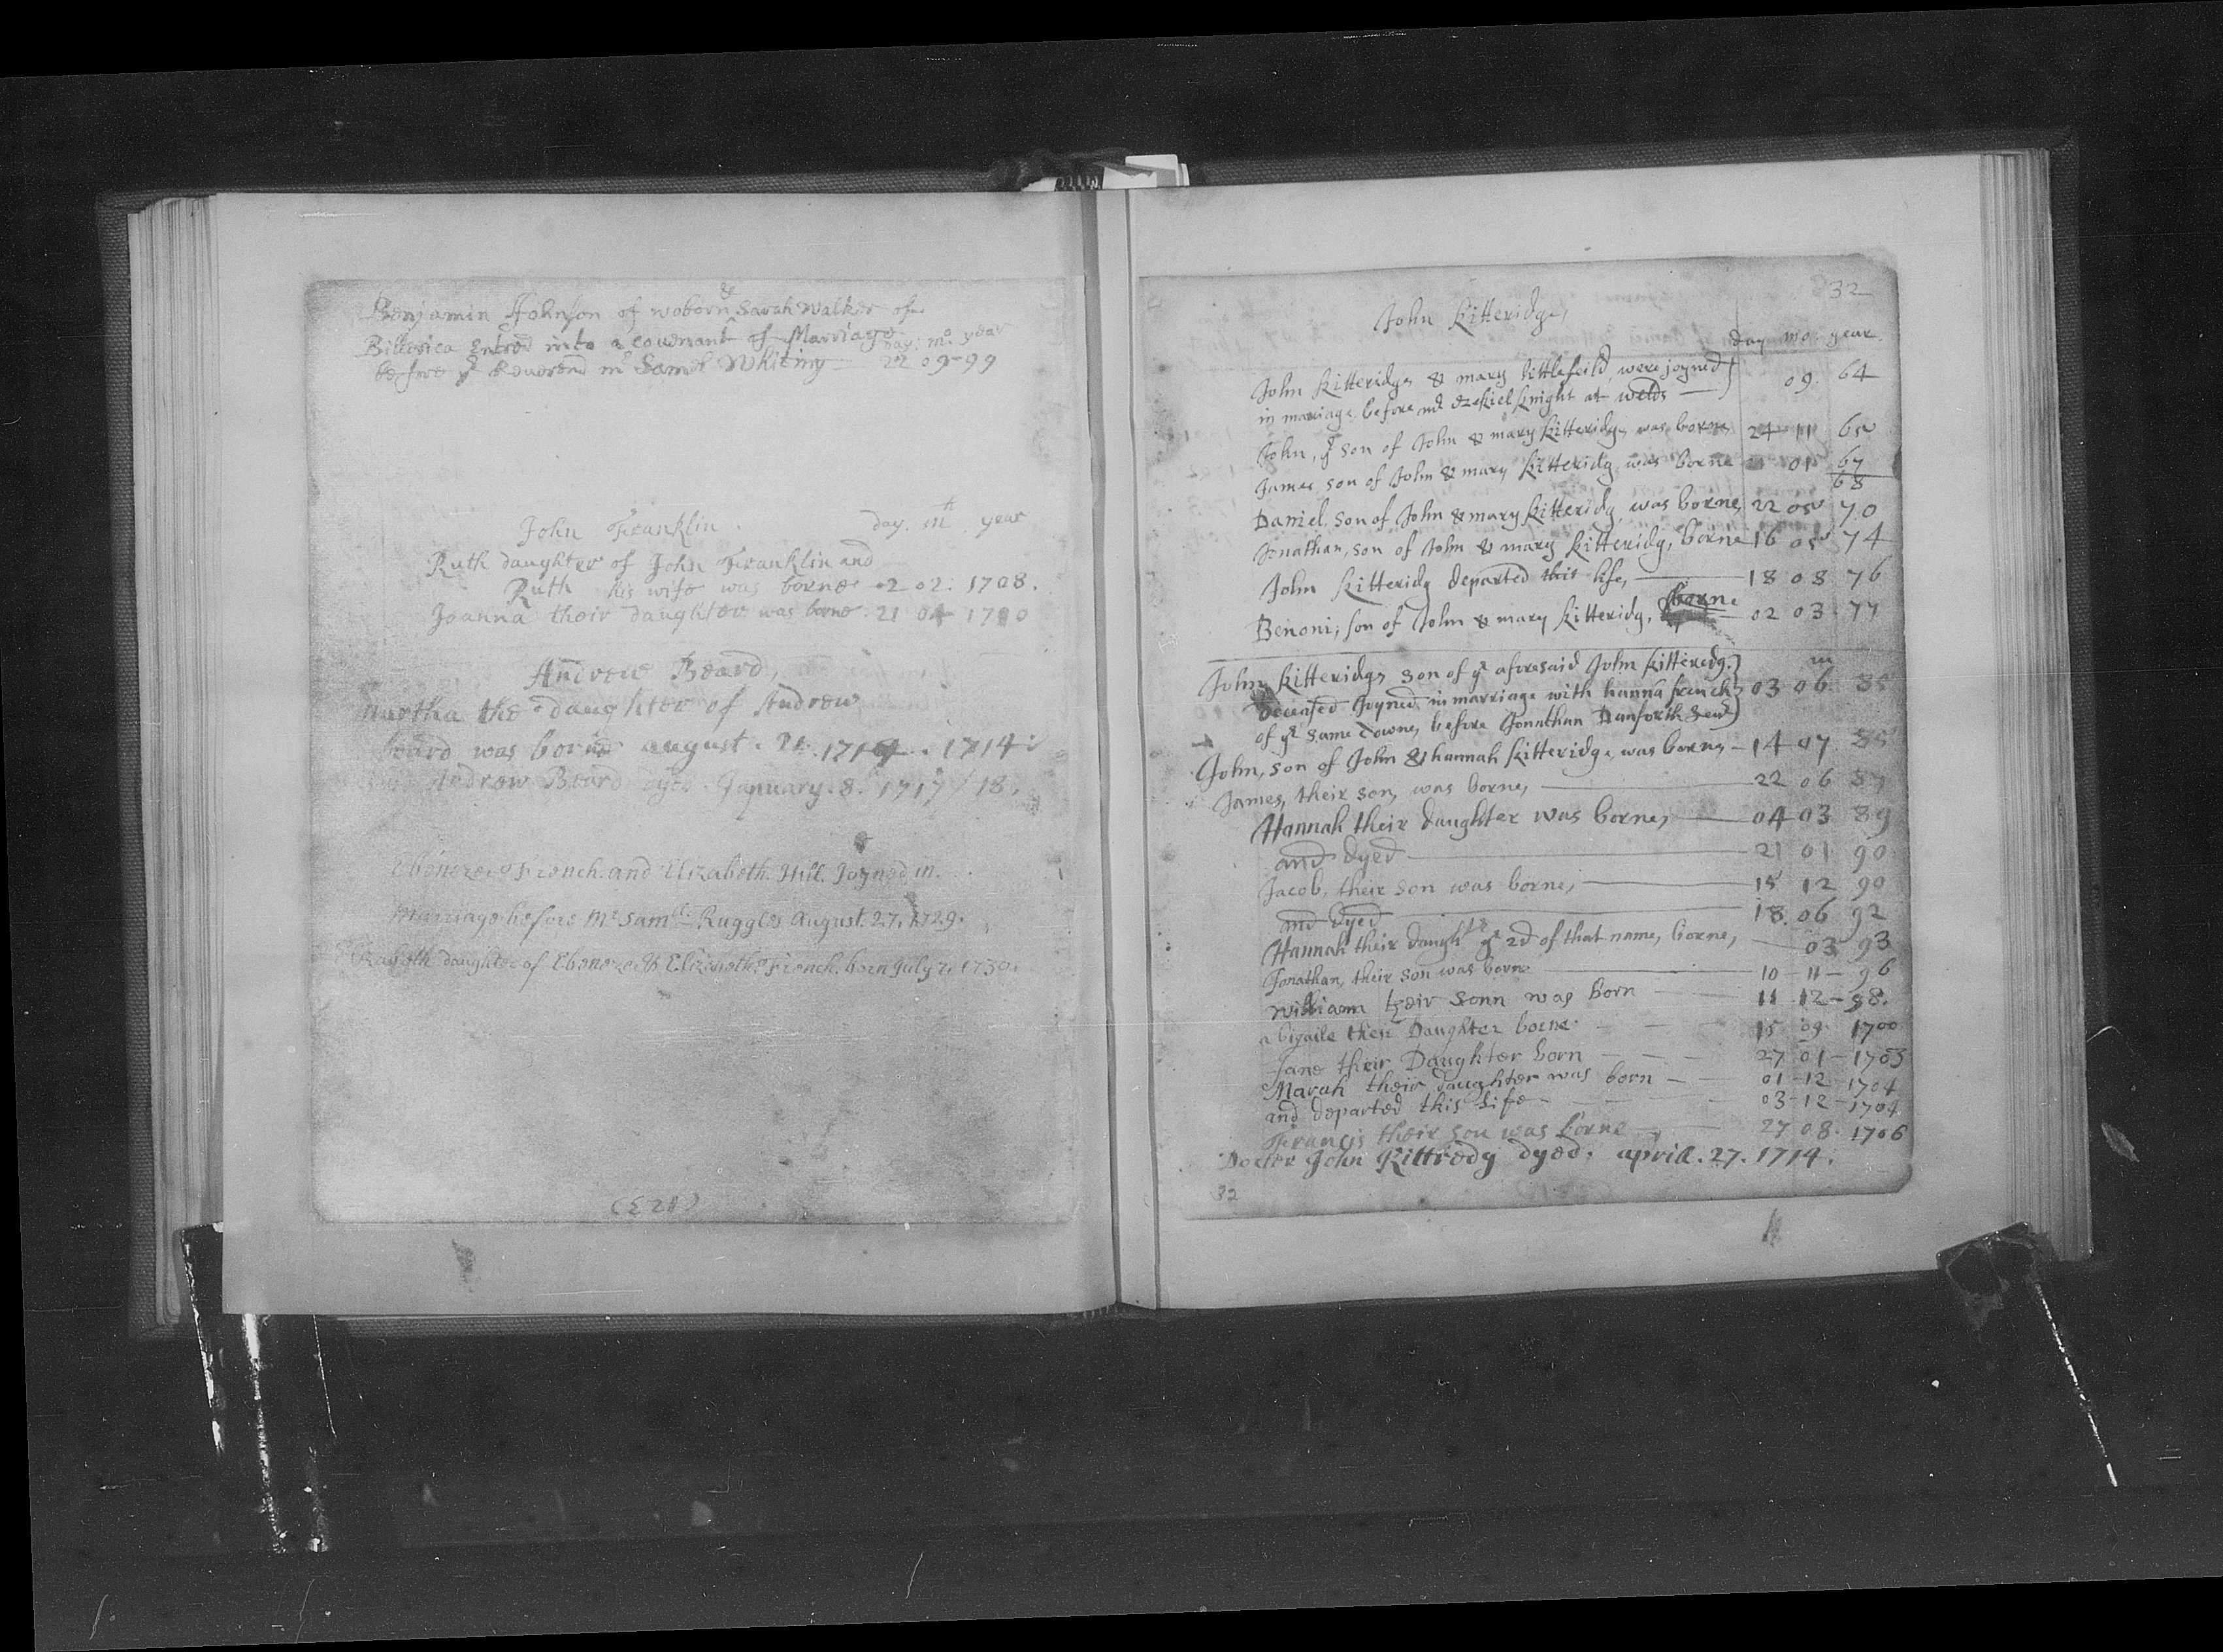 Benjamin Johnson of woborn & Sarah Walker of
Billerica Entred into a couenant of Marriage day: mo: year
before ye Reuerend mr Samll Whiting — 22 09-99
John Franklin. day. mth year
Ruth daughter of John Franklin and
Ruth his wife was borne 02 02: 1708.
Joanna their daughter was borne. 21 04 1710
Andrew Beard,
Martha the daughter of Andrew
beard was borne august. 21. 1714. 1714
Andrew Beard dyed January. 8. 1717/18.
Ebenezer French. and Elizabeth. Hill. Joyned in.
Marriage before Mr. Samll. Ruggles August. 27. 1729.
Elizabeth daughter of Ebenezer & Elizabeth French. born July 7. 1730.
32
John Kitteridge,
day mo. year.
John Kitteridge & mary littlefeild, were joyned
in marriage, before mr Ezekiel Knight at wells — 09. 64
John, ye son of John & mary Kitteridge, was borne 24 11 65
James, son of John & mary Kitteridg was borne 01 67
68
Daniel, son of John & mary Kitteridg, was borne, 22 05 70
Jonathan, son of John & mary Kitteridg, borne 16 05 74
John Kitteridg departed this life, — 18 08 76
Benoni, son of John & mary Kitteridg, borne — 02 03 77
John Kitteridge son of ye aforesaid John Kitteridg. m
deceased Joyned in marriage with hanna french 03 06 85
of ye same Towne, before Jonathan Danforth Senr
John, son of John & hannah Kitteridge, was borne — 14 07 85
James, their son, was borne, — 22 06 87
Hannah their daughter was borne, — 04 03 89
and dyed — 21 01 90
Jacob, their son was borne, — 15 12 90
and dyed — 18. 06 92
Hannah their daughtr ye 2d of that name, borne, — 03 93
Jonathan, their son was borne — 10 - 11 - 96
William their sonn was born — 11 12 - 98.
abigaile their Daughter borne — 15 09 1700
Jane their Daughter born — 27 01 - 1703
Marah their daughter was born — 01 12 1704
and departed this Life — 03 - 12 - 1704
Francis their son was borne — 27 08. 1706
Docter John Kittredg dyed. april. 27. 1714.
32